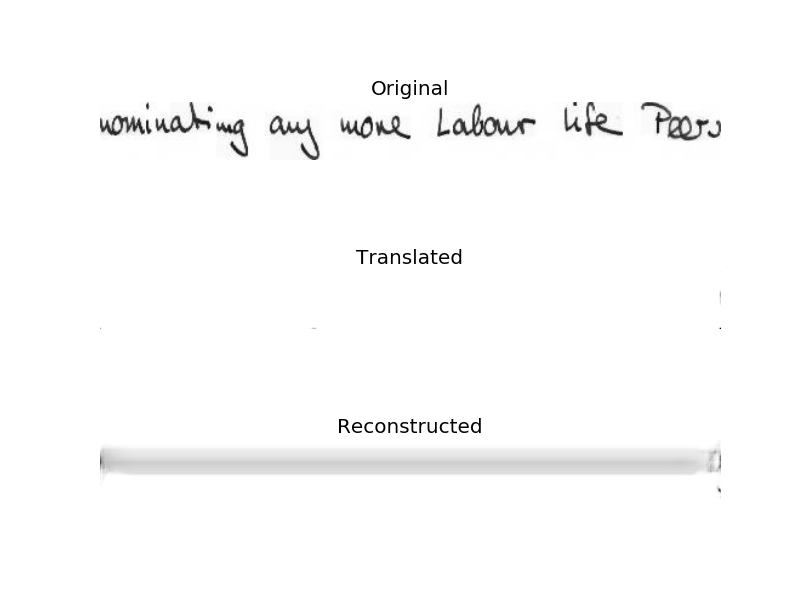 Original
nominating any more Labour life Peers
Translated
Reconstructed